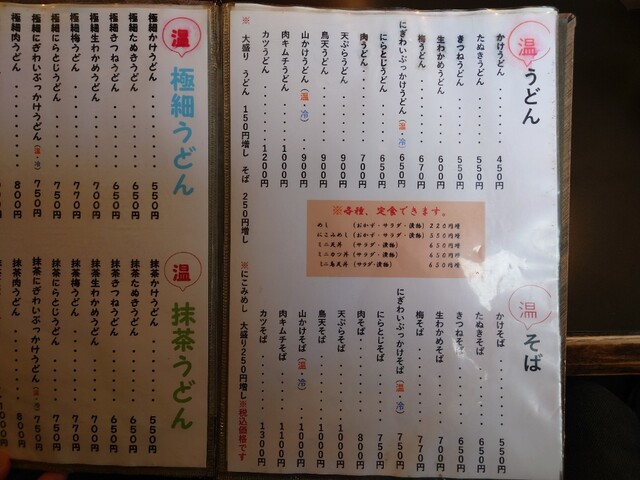 温 うどん
かけうどん 450円
たぬきうどん 550円
きつねうどん 550円
生わかめうどん 600円
梅うどん 670円
にぎわいぶっかけうどん(温・冷) 650円
にらとじうどん 650円
肉うどん 700円
天ぷらうどん 900円
鳥天うどん 900円
山かけうどん(温・冷) 900円
肉キムチうどん 1000円
カツうどん 1200円
※大盛り うどん 150円増し そば 250円増し
※にこみめし 大盛り250円増し
※税込価格です
※各種、定食できます。
めし (おかず・サラダ・漬物) 220円増
にこみめし (おかず・サラダ・漬物) 550円増
ミニ天丼 (サラダ・漬物) 650円増
ミニカツ丼 (サラダ・漬物) 650円増
ミニ鳥天丼 (サラダ・漬物) 650円増
温 そば
かけそば 550円
たぬきそば 650円
きつねそば 650円
生わかめそば 700円
梅そば 770円
にぎわいぶっかけそば(温・冷) 750円
にらとじそば 750円
肉そば 800円
天ぷらそば 1000円
鳥天そば 1000円
山かけそば(温・冷) 1000円
肉キムチそば 1100円
カツそば 1300円
温 極細うどん
極細かけうどん 550円
極細たぬきうどん 650円
極細きつねうどん 650円
極細生わかめうどん 700円
極細梅うどん 770円
極細にらとじうどん 750円
極細にぎわいぶっかけうどん(温・冷) 750円
極細肉うどん 800円
温 抹茶うどん
抹茶かけうどん 550円
抹茶たぬきうどん 650円
抹茶きつねうどん 650円
抹茶生わかめうどん 700円
抹茶梅うどん 770円
抹茶にらとじうどん 750円
抹茶にぎわいぶっかけうどん(温・冷) 750円
抹茶肉うどん 800円